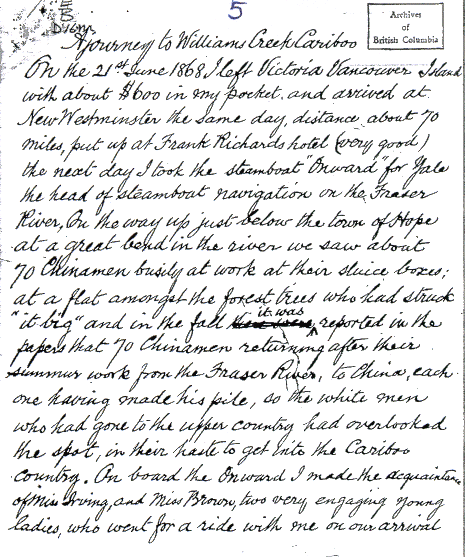 5
Archives
of
British Columbia
A journey to Williams Creek Cariboo
On the 21st June 1868 I left Victoria Vancouver Island
with about $600 in my pocket. and arrived at
New Westminster the same day, distance about 70
miles, put up at Frank Richards hotel (very good)
the next day I took the steamboat "Onward" for Yale
the head of steamboat navigation on the Fraser
River, On the way up just below the town of Hope
at a great bend in the river we saw about
70 Chinamen busily at work at their sluice boxes;
at a flat amongst the forest trees who had struck
"it big" and in the fall it was reported in the
papers that 70 Chinamen returning after their
summer work from the Fraser River, to China, each
one having made his pile, so the white men
who had gone to the upper country had overlooked
the spot, in their haste to get into the Cariboo
country. On board the Onward I made the acquaintance
of Miss Irving, and Miss Brown, two very engaging young
ladies, who went for a ride with me on our arrival